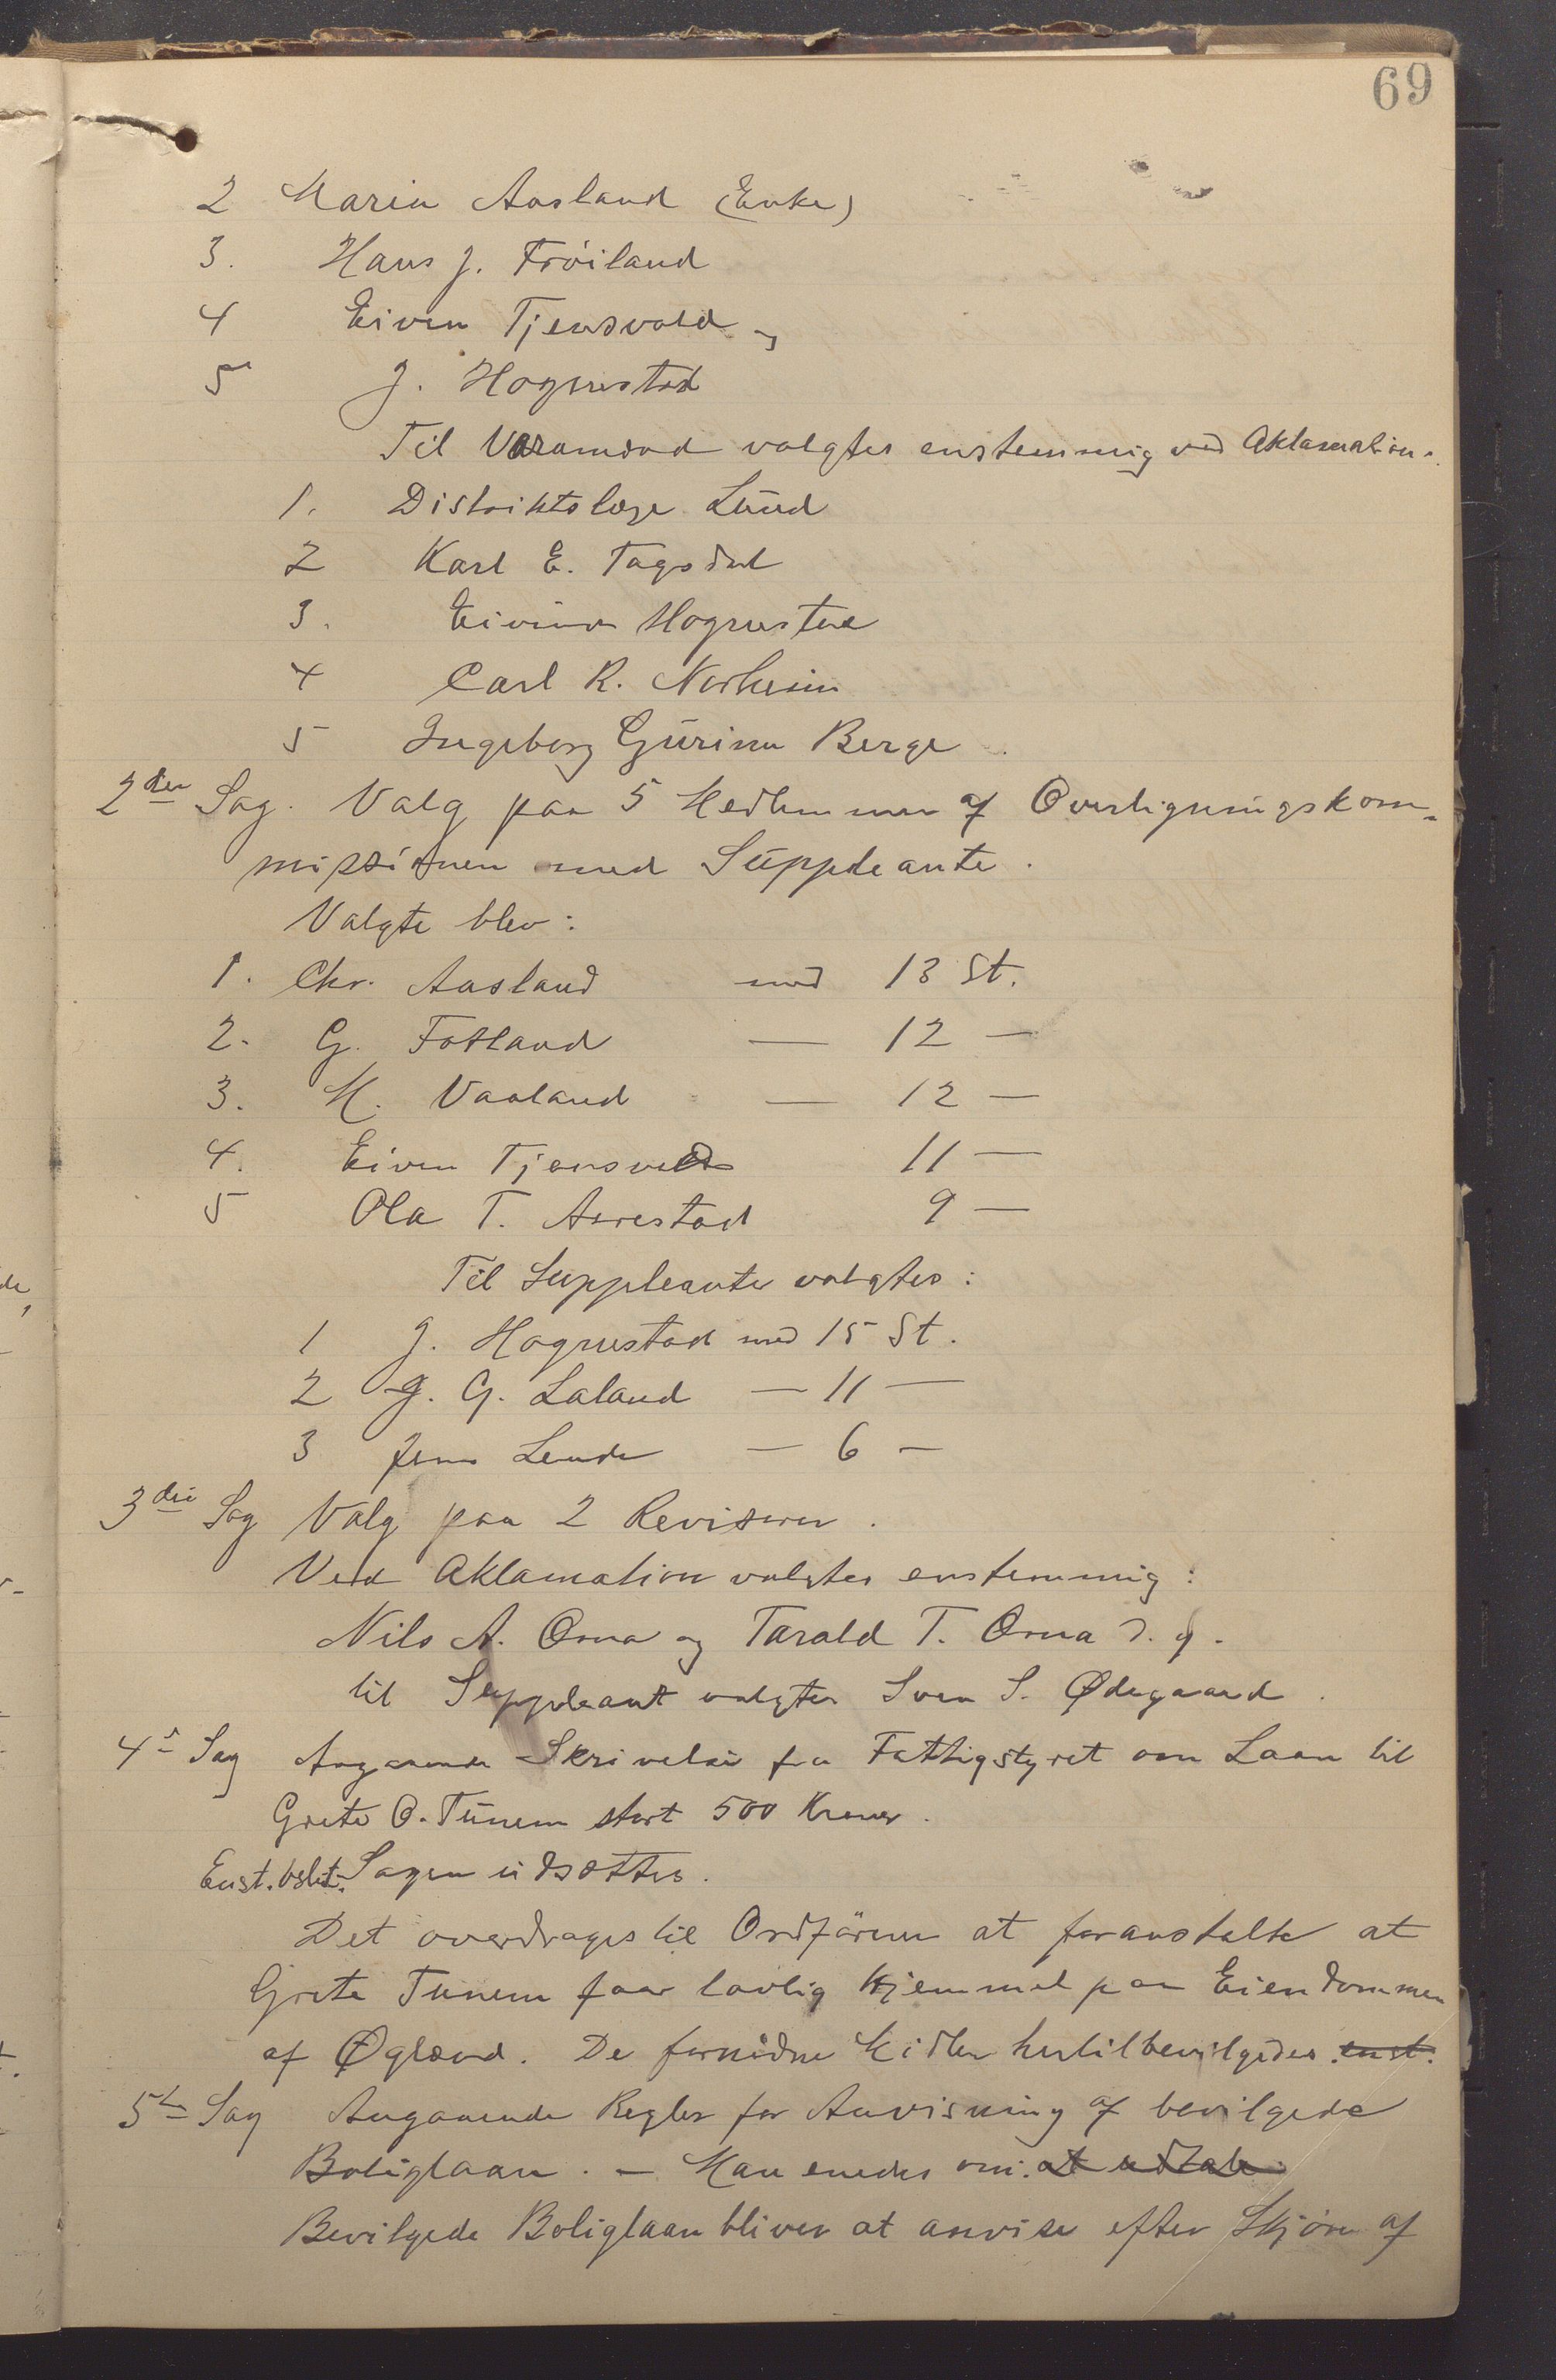 69
2 Maria Aasland (Enke)
3. Hans J. Fröiland
4 Eiven Tjensvold og
5 J. Hognestad
Til Varamænd valgtes enstemmig ved Aklamation.
1. Distriktslæge Lund
2 Karl E. Tagsdal
3. Eivind Hognestad
4 Carl R. Norheim
5 Ingeborg Gurine Berge
2den Sag. Valg paa 5 Medlemmer af Overligningskom-
missionen med Suppleante.
Valgte blev:
1. Chr. Aasland med 13 St.
2. G. Fotland — 12 —
3. M. Vaaland — 12 —
4. Eiven Tjensvold 11 —
5 Ola T. Aarestad 9 —
Til Suppleanter valgtes:
1 J. Hognestad med 15 St.
2 J. G. Laland — 11 —
3 Jens Lende — 6 —
3die Sag Valg paa 2 Revisorer.
Ved Aklamation valgtes enstemmig:
Nils A. Orna og Tarald T. Orna d. y.
til Suppleant valgtes Sven S. Ødegaard.
4de Sag Angaaende Skrivelse fra Fattigstyret om Laan til
Grete O. Tunem stort 500 Kroner.
Enst. beslut. Sagen udsættes.
Det overdrages til Ordføreren at foranstalte at
Grete Tunem faar lovlig Hjemmel paa Eiendommen
af Øgland. De fornødne Midler hertil bevilgedes. enst.
5te Sag Angaaende Regler for Anvisning af bevilgede
Boliglaan. — Man enedes om: at udtale:
Bevilgede Boliglaan bliver at anvise efter Skjøn af